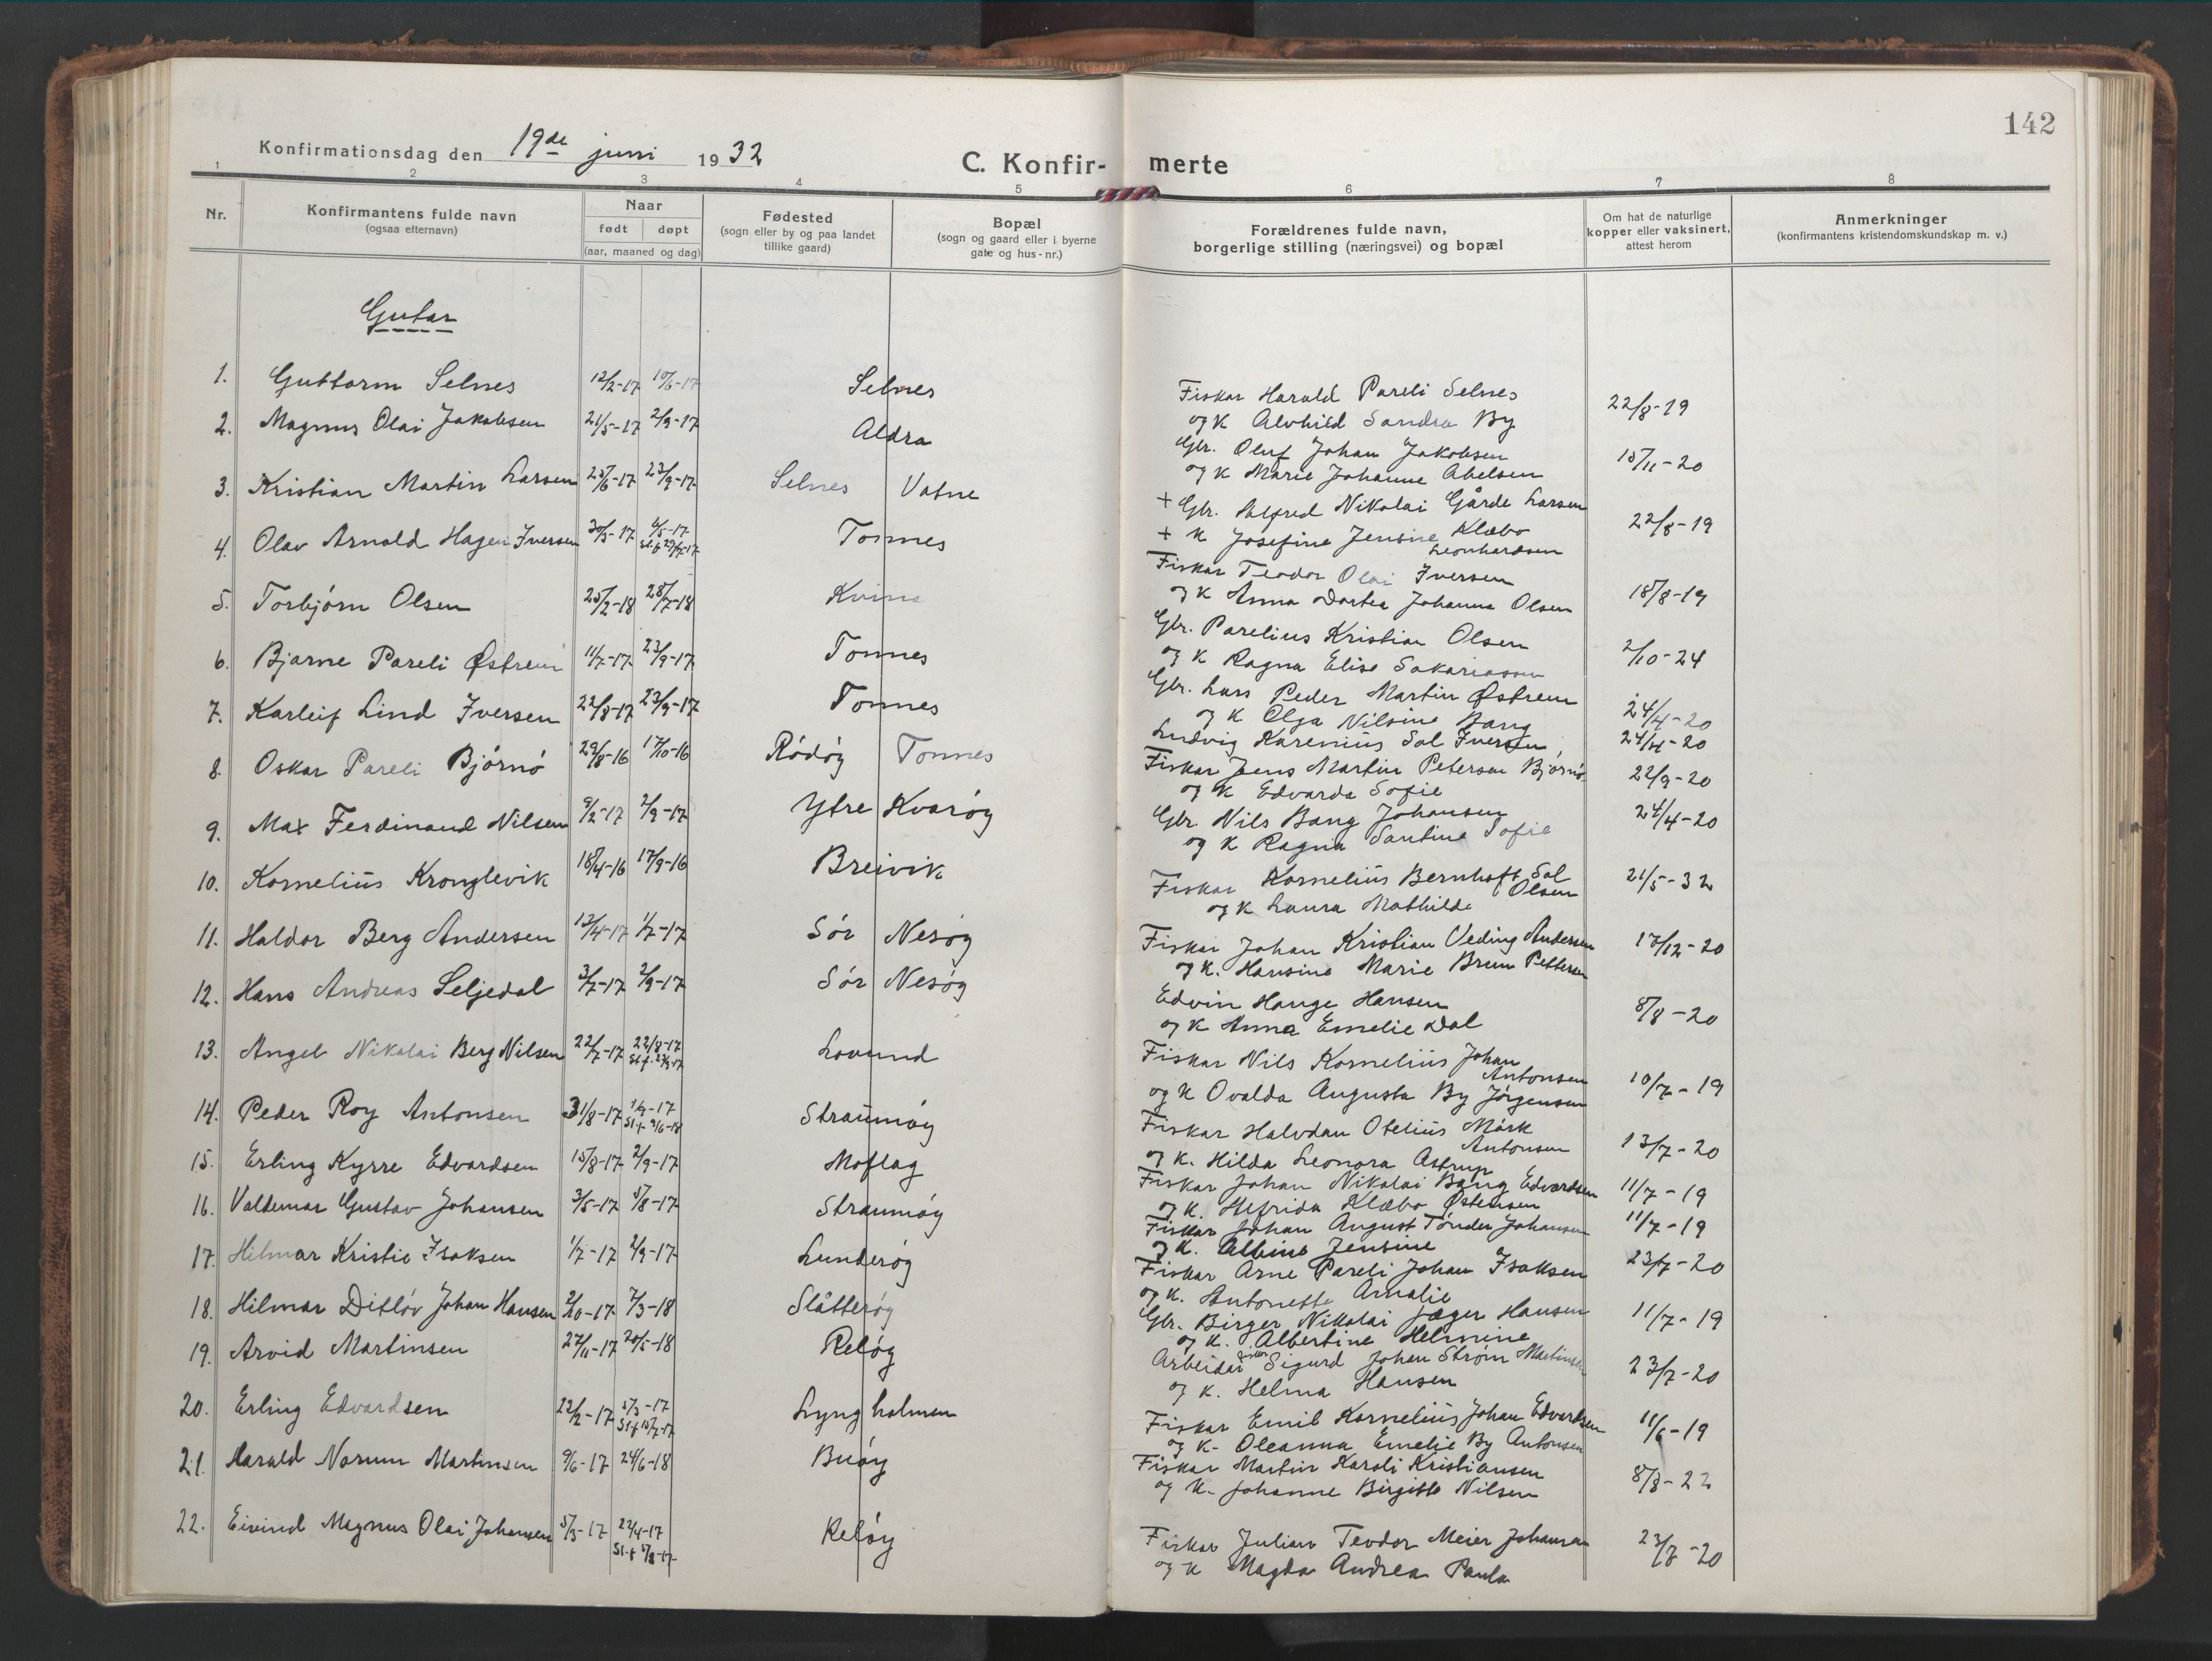 142
Konfirmationsdag den 19de juni 1932
C. Konfirmerte
1 2 3 4 5 6 7 8
Nr.
Konfirmantens fulde navn
(ogsaa efternavn)
Naar
født døpt
(aar, maaned og dag)
Fødested
(sogn eller by og paa landet
tillike gaard)
Bopæl
(sogn og gaard eller i byerne
gate og hus-nr.)
Forældrenes fulde navn,
borgerlige stilling (næringsvei) og bopæl
Om hat de naturlige
kopper eller vaksinert,
attest herom
Anmerkninger
(konfirmantens kristendomskundskap m. v.)
Gutar
1. Guttorm Selnes 12/2-17 10/6-17 Selnes
Fiskar Harald Pareli Selnes 22/8-19
og K Alvhild Sandra By
2. Magnus Olai Jakobsen 21/5-17 2/9-17 Aldra
Gbr. Oluf Johan Jakobsen 15/11-20
og K Marie Johanne Abelsen
3. Kristian Martin Larsen 25/6-17 23/9-17 Selnes Vatne
+ Gbr. Alfred Nikolai Gårde Larsen 22/8-19
+ K Josefine Jensine Klæbo
Leonhardsen
4. Olav Arnold Hagen Iversen 30/3-17 6/5-17 Tonnes
St. f 29/7-17
Fiskar Teodor Olai Iversen 18/8-19
og K Anna Dortea Johanna Olsen
5. Torbjørn Olsen 25/2-18 28/7-18 Kvina
Gbr. Parelius Kristian Olsen 2/10-24
og K Ragna Elise Sakariassen
6. Bjarne Pareli Østrem 11/7-17 23/9-17 Tonnes
Gbr. Lars Peder Martin Østrem 24/4-20
og K Olga Nilsine Bang
7. Karleif Lind Iversen 22/8-17 23/9-17 Tonnes
Ludvig Karenius Sol Iversen, 24/4-20
8. Oskar Pareli Bjørnø 29/8-16 17/10-16 Rødøy Tonnes
Fiskar Jens Martin Petersen Bjørnø 22/9-20
og K Edvarda Sofie
9. Max Ferdinand Nilsen 9/2-17 2/9-17 Ytre Kvarøy
Gbr. Nils Bang Johansen 24/4-20
og K Ragna Santine Sofie
10. Kornelius Kronglevik 18/4-16 17/9-16 Breivik
Fiskar Kornelius Bernhoft Sol 21/5-32
Olsen
og K Laura Mathilde
11. Haldor Berg Andersen 12/4-17 1/7-17 Sør Nesøy
Fiskar Johan Kristian Veding Andersen 17/12-20
og K. Hansine Marie Brun Pettersen
12. Hans Andreas Seljedal 3/7-17 2/9-17 Sør Nesøy
Edvin Hange Hansen 8/8-20
og K Anna Emelie Dal
13. Angel Nikolai Berg Nilsen 22/7-17 22/8-17 Lovund
Fiskar Nils Kornelius Johan
Antonsen 10/7-19
og K Ovalda Augusta By Jørgensen
14. Peder Roy Antonsen 31/8-17 Straumøy
Fiskar Halvdan Otelius Mørk
Antonsen 13/7-20
og K. Hilda Leonora Astrup
15. Erling Kyrre Edvardsen 15/8-17 2/9-17 Moflag
Fiskar Johan Nikolai Bang Edvardsen 11/7-19
og K. Hefrida Klæbo Østensen
16. Valdemar Gustav Johansen 3/5-17 5/8-17 Straumøy
Fiskar Johan August Tønder Johansen 11/7-19
og K. Albine Jensine
17. Hilmar Kristie Isaksen 1/7-17 2/9-17 Lunderøy
Fiskar Arne Pareli Johan Isaksen 23/7-20
og K. Antonette Amalie
18. Hilmar Ditløv Johan Hansen 2/10-17 7/3-18 Slåtterøy
Gbr. Birger Nikolai Jæger Hansen 11/7-19
og K. Albertine Helmine
19. Arvid Martinsen 27/11-17 20/5-18 Reløy
Arbeidar Sigurd Johan Strøm Martinsen 23/7-20
og K. Helma Hansen
20. Erling Edvardsen 22/2-17 5/3-17 Lyngholmen
St. f 15/7-17
Fiskar Emil Kornelius Johan Edvardsen 11/6-19
og K- Oleanna Emelie By Antonsen
21. Harald Norum Martinsen 9/6-17 24/6-18 Buøy
Fiskar Martin Karoli Kristiansen 8/8-22
og K- Johanne Birgitte Nilsen
22. Eivind Magnus Olai Johansen 5/3-17 22/4-17 Reløy
St. f 5/8-17
Fiskar Julian Teodor Meier Johansen 23/7-20
og K Magda Andrea Paula